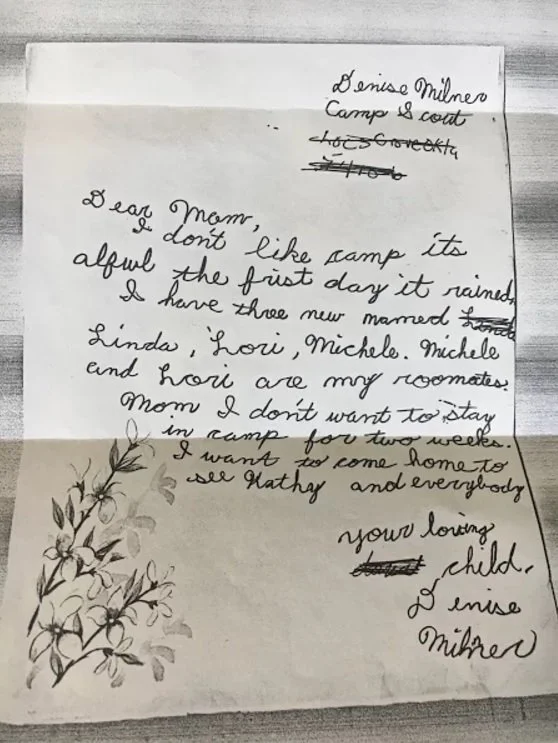 Denise Milner
Camp Scout
Dear Mom,
I don't like camp its
alfwl the frist day it rained.
I have three new mamed
Linda, Lori, Michele. Michele
and Lori are my roomates.
Mom I don't want to stay
in camp for two weeks.
I want to come home to
see Kathy and everybody
your loving
child,
Denise
Milner